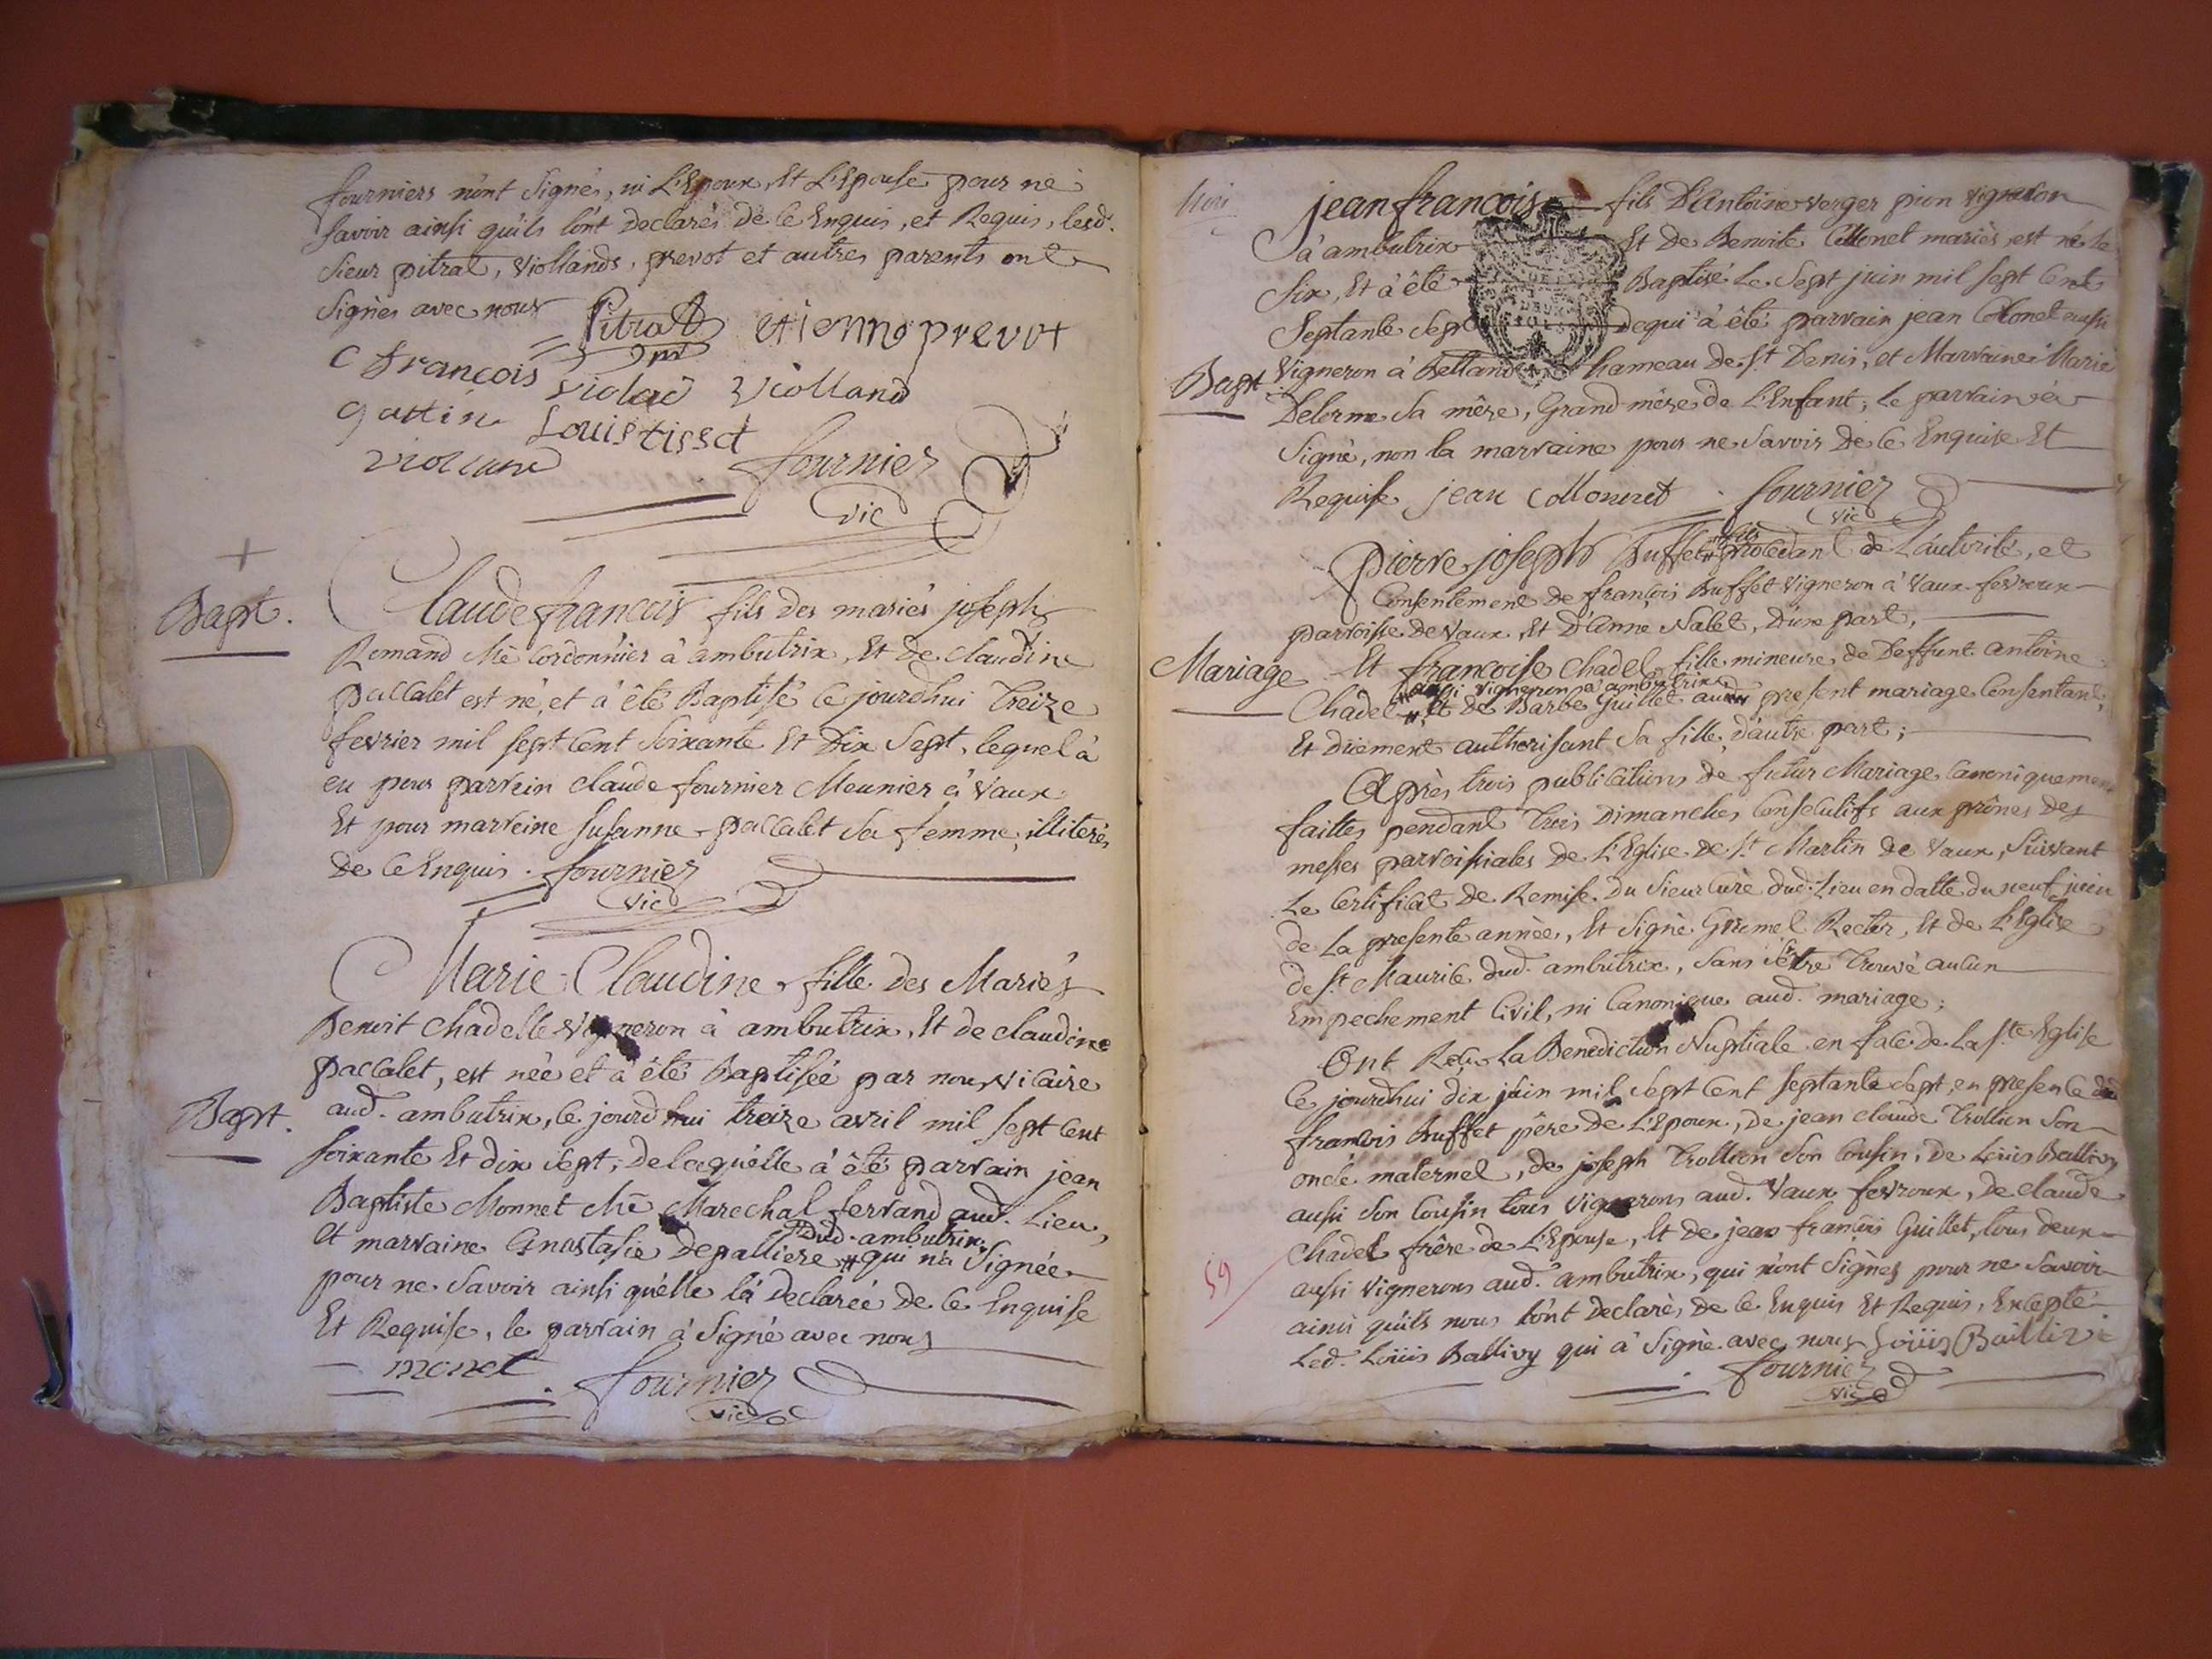 fourniers n'ont Signés, ni L'Epoux, Et L'Epouse pour ne
savoir ainsi qu'ils l'ont Declarés de ce Enquis, et Requis, lesd.
Sieur pitrat, Viollands, prevot et autres parents ont
Signés avec nous
Pitrat etienne prevot
C francois violad Violland
gattin Louis tissot
violland fournier
vic
Bapt.
Claude francois fils des mariés joseph
Remand Me Cordonnier à ambutrix, Et de Claudine
paccalet est né, et à été Baptisé Ce jourdhui Treize
fevrier mil sept Cent Soixante Et Dix Sept, lequel à
eu pour parrein Claude fournier Meunier à Vaux
Et pour marreine Susanne paccalet Sa femme, illiterés
de Ce Enquis. fournier
vic
Marie Claudine fille des Mariés
Benoit Chadelle Vigneron à ambutrix, Et de claudine
paccalet, est née et à été Baptisée par nous Vicaire
Bapt.
aud. ambutrix, le jourd'hui treize avril mil sept Cent
soixante Et dix Sept; de laquelle à été parrain jean
Baptiste Monnet Me Marechal ferrand aud. Lieu,
dud. ambutrix
et marraine Anastasie Depalliere # qui n'a Signée
pour ne Savoir ainsi qu'elle l'a Declarée de Ce Enquise
Et Requise, le parrain à Signé avec nous
monet fournier
vic
jean francois fils D'antoine verger pion Vigneron
à ambutrix Et de Benoite Collonet mariés est né le
Six, Et à été Baptisé Le Sept juin mil sept Cent
Septante Sept de qui à été parrain jean Colonel aussi
Bapt.
Vigneron à Bettand hameau de St Denis, et Marraine Marie
Delorme Sa mère, Grand mère de L'Enfant; Le parrain à
Signé, non la marraine pour ne Savoir de Ce Enquise Et
Requise jean collonet. fournier
vic
fils
Pierre joseph Buffet # procedant de L'autorité, et
Consentement de françois Buffet Vigneron à Vaux fevroux
parroisse de Vaux Et D'anne Nalet, D'une part,
Mariage
Et francoise Chadel fille mineure, de Deffunt antoine
aussi vigneron à ambutrix
Chadel # Et de Barbe Guillet au present mariage Consentant,
Et duement authorisant Sa fille, d'autre part;
Après trois publications de futur Mariage Canoniquement
faittes pendant Trois Dimanches Consecutifs aux prônes des
messes parroissiales de L'Eglise de St Martin de Vaux, Suivant
Le Certificat de Remise du Sieur Curé dud. Lieu en datte du neuf juin
de la presente année, Et Signé Grumel Rector, Et de L'Eglise
de St Maurice dud. ambutrix, Sans s'être Trouvé aucun
Empechement Civil, ni Canonique aud. mariage;
Ont Reçu La Benediction Nuptiale en face de la Ste Eglise
Ce jourdhui dix juin mil Sept Cent Septante Sept, en presence de
francois Buffet père de L'Epoux, de jean Claude Trollion Son
oncle maternel, de joseph Trollion Son Cousin, de Loüis Ballivy
aussi Son Cousin tous Vignerons aud. Vaux fevroux, de Claude
Chadel frère de L'Epouse, Et de jean françois Guillet, tous deux
59
aussi Vignerons aud. ambutrix, qui n'ont Signés pour ne Savoir
ainsi qu'ils nous l'ont declarés, de Ce Enquis Et Requis, Excepté
Led. Loüis Ballivy qui à Signé avec nous Loüis Baillivi
fournier
vic